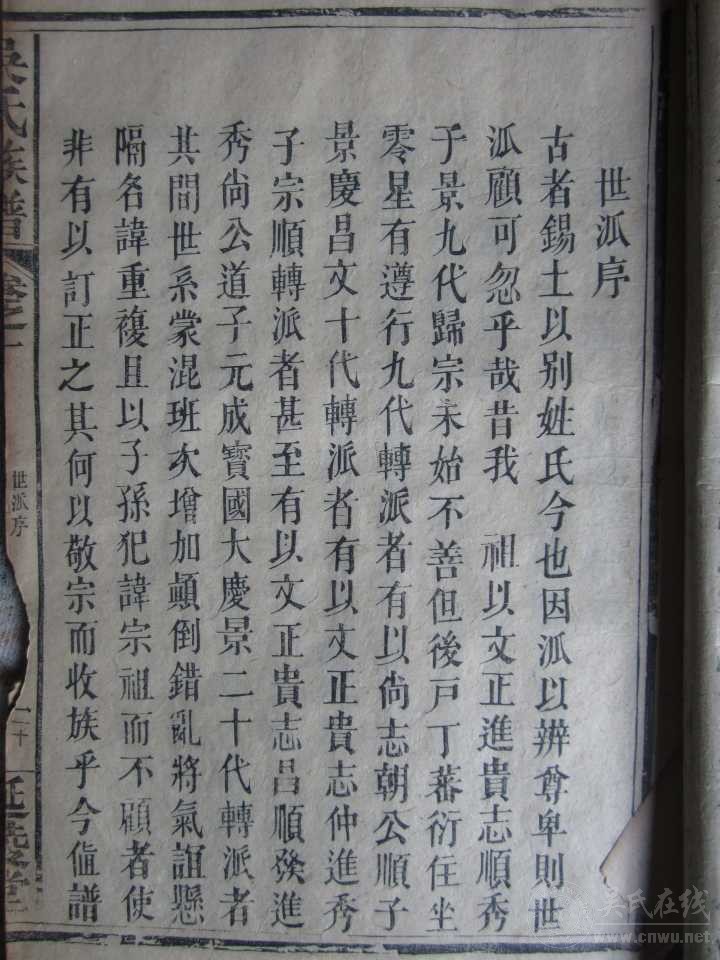 世泒序
古者錫土以別姓氏今也因泒以辨尊卑則世
泒顧可忽乎哉昔我　祖以文正進貴志順秀
于景九代歸宗未始不善但後戶丁蕃衍住坐
零星有遵行九代轉派者有以尚志朝公順子
景慶昌文十代轉派者有以文正貴志仲進秀
子宗順轉派者甚至有以文正貴志昌順發進
秀尚公道子元成寳國大慶景二十代轉派者
其間世系蒙混班次增加顚倒錯亂將氣誼懸
隔名諱重複且以子孫犯諱宗祖而不顧者使
非有以訂正之其何以敬宗而收族乎今修譜
吳氏族譜
卷之一
世派序
堂
吴氏在线
www.cnwu.net